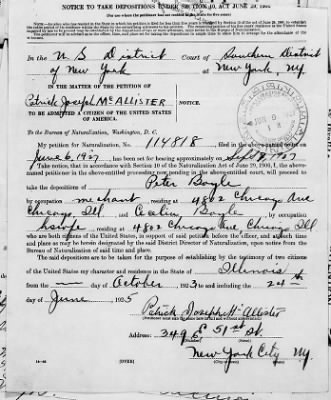 NOTICE TO TAKE DEPOSITIONS UNDER SECTION 10, ACT JUNE 29, 1906
In the U S District Court of Southern District
of New York at New York, N.Y.
IN THE MATTER OF THE PETITION OF
Patrick Joseph McALLISTER NOTICE.
TO BE ADMITTED A CITIZEN OF THE UNITED STATES
OF AMERICA.
To the Bureau of Naturalization, Washington, D. C.
My petition for Naturalization, No. 114818, filed
June 6, 1927, has been set for hearing approximately on Sept 8, 1927
Take notice, that in accordance with Section 10 of the Naturalization Act of June 29, 1906, I, the above-
named petitioner in the above-entitled proceeding now pending in the above-entitled court, will proceed
to take the depositions of Peter Boyle
by occupation merchant residing at 4802 Chicago Ave
Chicago, Ill and Cecilia Boyle, by occupation
hswife residing at 4802 Chicago Ave Chicago Ill
who are both citizens of the United States, in support of said petition before the officer, and at such time
and place as may be herein designated by the said District Director of Naturalization, upon notice from the
Bureau of Naturalization of said time and place.
The said depositions are to be taken for the purpose of establishing by the testimony of two citizens
of the United States my character and residence in the State of Illinois
from the — day of October 1923 to and including the 24th
day of June 1925
Patrick Joseph McAllister
Address: 349 E 51st St.
New York City NY.
(OVER)